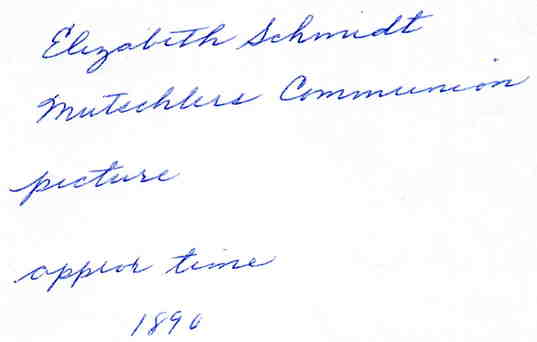 Elizabeth Schmidt
Mutschlers Communion
picture
approx time
1896